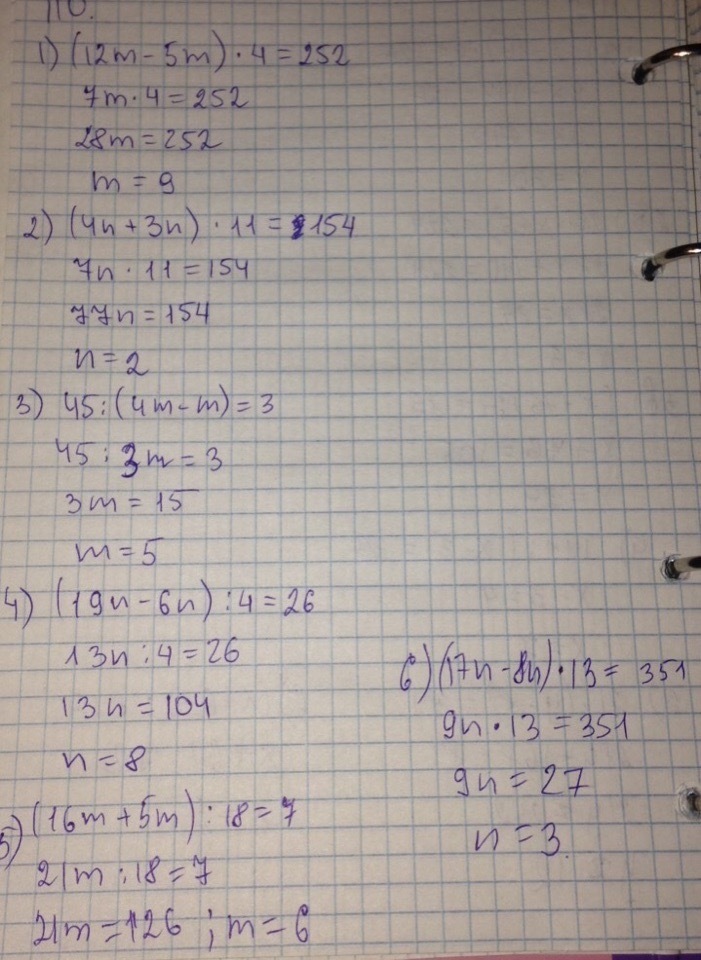 110.
1) (12m - 5m) · 4 = 252
7m · 4 = 252
28m = 252
m = 9
2) (4n + 3n) · 11 = 154
7n · 11 = 154
77n = 154
n = 2
3) 45 : (4m - m) = 3
45 : 3m = 3
3m = 15
m = 5
4) (19n - 6n) : 4 = 26
13n : 4 = 26
13n = 104
n = 8
5) (16m + 5m) : 18 = 7
21m : 18 = 7
21m = 126 ; m = 6
6) (17n - 8n) · 13 = 351
9n · 13 = 351
9n = 27
n = 3.